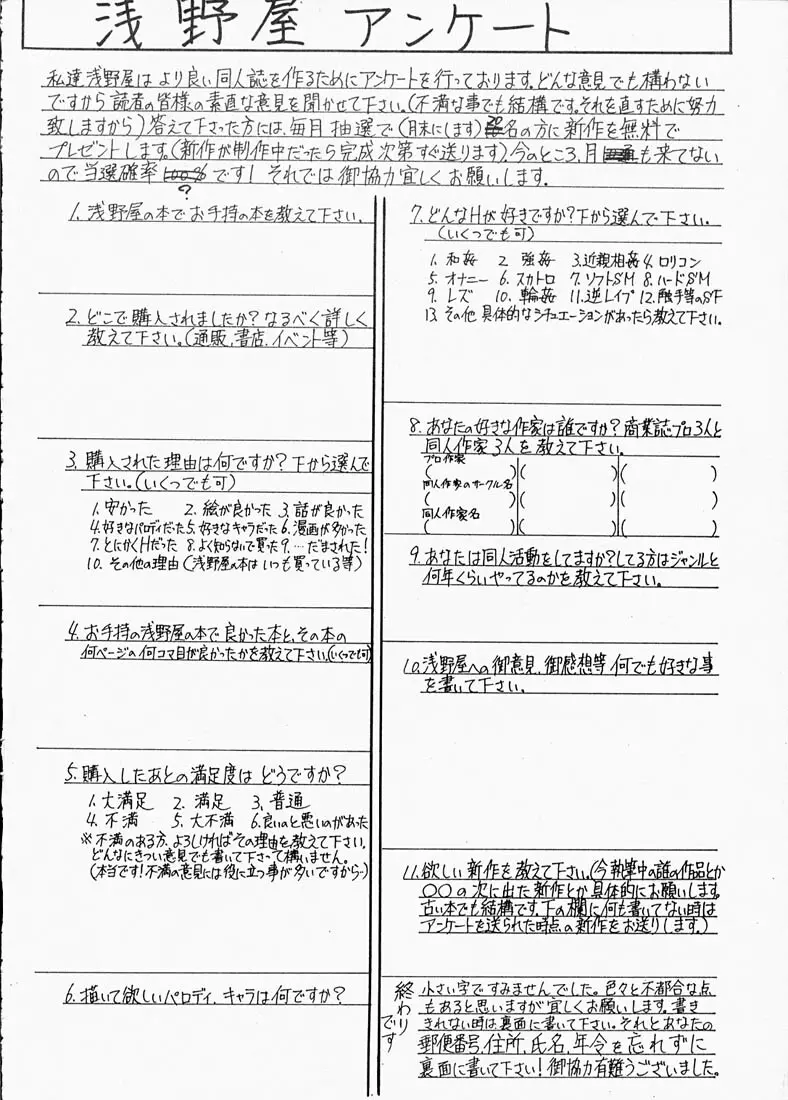 浅野屋 アンケート
私達浅野屋はより良い同人誌を作るためにアンケートを行っております。どんな意見でも構わない
ですから読者の皆様の素直な意見を聞かせて下さい。(不満な事でも結構です。それを直すために努力
致しますから)答えて下さった方には、毎月抽選で(月末にします)名の方に新作を無料で
プレゼントします。(新作が制作中だったら完成次第すぐ送ります)今のところ、月も来てない
ので当選確率100%です! それでは御協力宜しくお願いします。
?
1. 浅野屋の本でお手持の本を教えて下さい。
2. どこで購入されましたか?なるべく詳しく
教えて下さい。(通販、書店、イベント等)
3. 購入された理由は何ですか?下から選んで
下さい。(いくつでも可)
1. 安かった 2. 絵が良かった 3. 話が良かった
4. 好きなパロディだった 5. 好きなキャラだった 6. 漫画が多かった
7. とにかくHだった 8. よく知らないで買った 9. …だまされた!
10. その他の理由(浅野屋の本はいつも買っている等)
4. お手持の浅野屋の本で良かった本と、その本の
何ページの何コマ目が良かったかを教えて下さい。(いくつでも可)
5. 購入したあとの満足度はどうですか?
1. 大満足 2. 満足 3. 普通
4. 不満 5. 大不満 6. 良いのと悪いのがあった
※不満のある方、よろしければその理由を教えて下さい。
どんなにきつい意見でも書いて下さって構いません。
(本当です!不満の意見には役に立つ事が多いですから…)
6. 描いて欲しいパロディ、キャラは何ですか?
7. どんなHが好きですか?下から選んで下さい。
(いくつでも可)
1. 和姦 2. 強姦 3. 近親相姦 4. ロリコン
5. オナニー 6. スカトロ 7. ソフトSM 8. ハードSM
9. レズ 10. 輪姦 11. 逆レイプ 12. 触手等のSF
13. その他 具体的なシチュエーションがあったら教えて下さい。
8. あなたの好きな作家は誰ですか?商業誌プロ3人と
同人作家3人を教えて下さい。
プロ作家
( )( )( )
同人作家のサークル名
( )( )( )
同人作家名
( )( )( )
9. あなたは同人活動をしてますか?してる方はジャンルと
何年くらいやってるのかを教えて下さい。
10. 浅野屋への御意見、御感想等何でも好きな事
を書いて下さい。
11. 欲しい新作を教えて下さい。(今執筆中の誰の作品とか
〇〇の次に出た新作とか具体的にお願いします。
古い本でも結構です。下の欄に何も書いてない時は
アンケートを送られた時点の新作をお送りします。)
終わりです
小さい字ですみませんでした。色々と不都合な点
もあると思いますが宜しくお願いします。書き
きれない時は裏面に書いて下さい。それとあなたの
郵便番号、住所、氏名、年令を忘れずに
裏面に書いて下さい!御協力有難うございました。